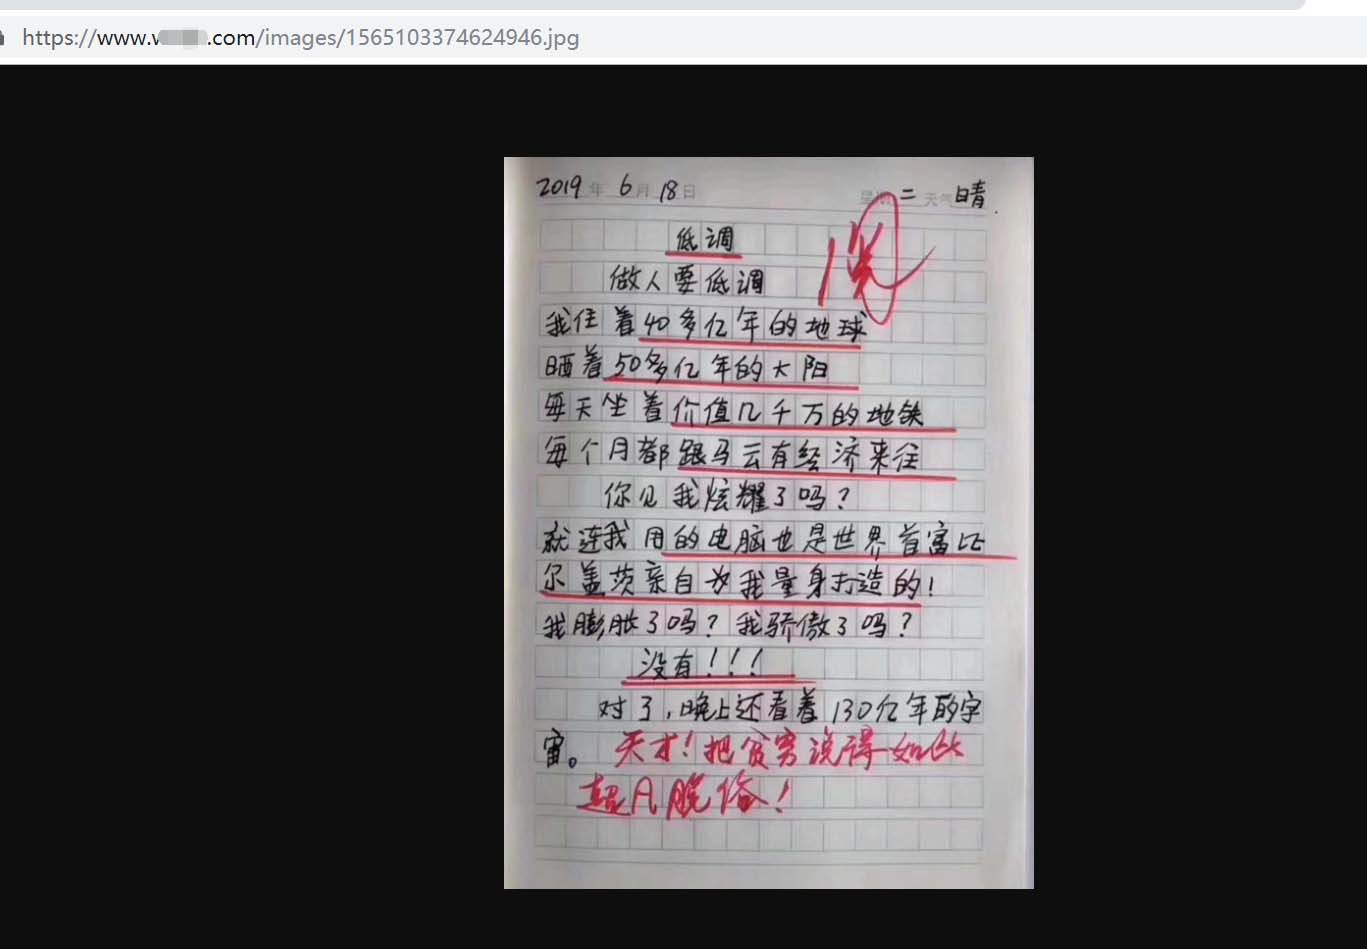 https://www.w.com/images/1565103374624946.jpg
2019年 6月 18日 星期二 天气 晴.
低调
做人要低调
我住着40多亿年的地球
晒着50多亿年的太阳
每天坐着价值几千万的地铁
每个月都跟马云有经济来往
你见我炫耀了吗?
就连我用的电脑也是世界首富比
尔盖茨亲自为我量身打造的!
我膨胀了吗?我骄傲了吗?
没有!!!
对了,晚上还看着130亿年的宇
宙。天才!把贫穷说得如此
超凡脱俗!